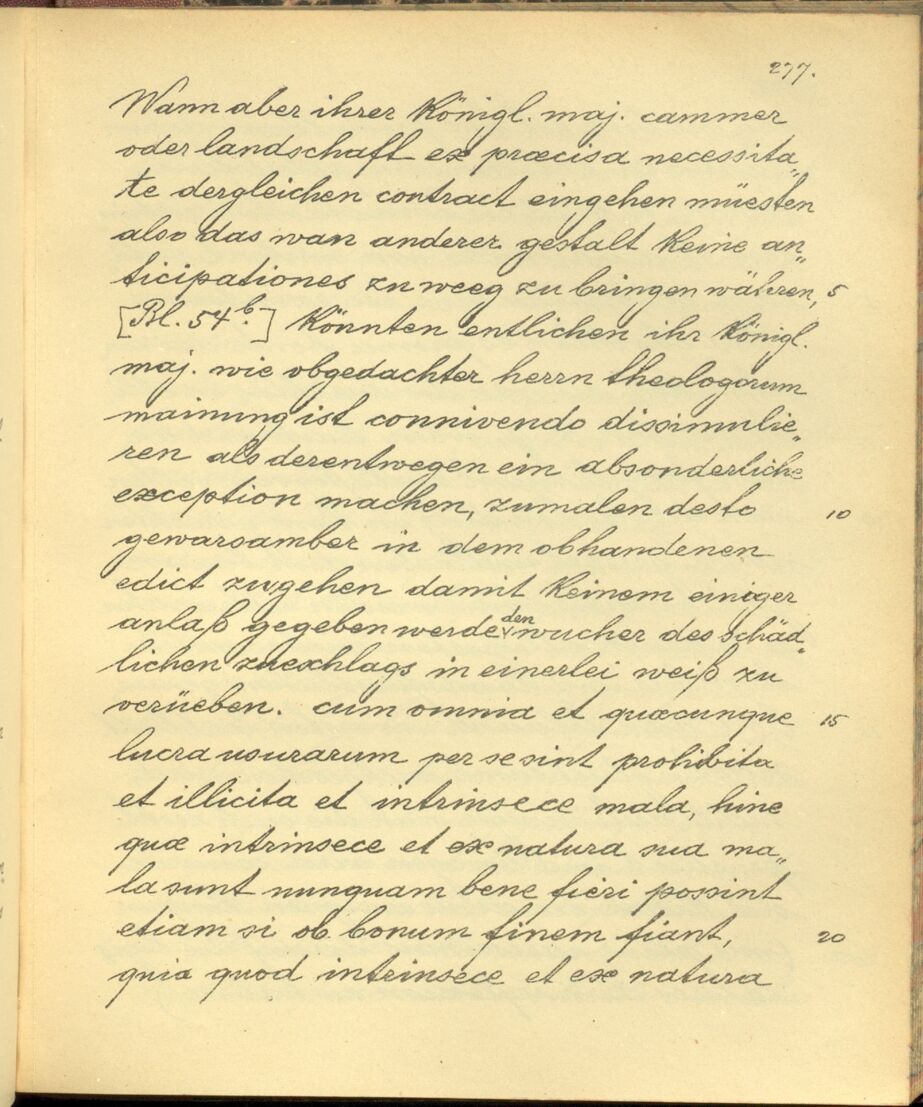 277.
Wann aber ihrer Königl. maj. cammer
oder landschaft ex præcisa necessita„
te dergleichen contract eingehen müesten
also das wan anderer gestalt keine an„
ticipationes zu weeg zu bringen währen, 5
[Bl. 54b.] könnten entlichen ihr Königl.
maj. wie obgedachter herrn theologorum
mainung ist connivendo dissimulie„
ren als derentwegen ein absonderliche
exception machen, zumalen desto 10
gewarsamber in dem obhandenen
edict zugehen damit keinem einiger
anlaß gegeben werde den wucher des schäd„
lichen zueschlags in einerlei weiß zu
verüeben. cum omnia et quæcunque 15
lucra usurarum per se sint prohibita
et illicita et intrinsece mala, hinc
quæ intrinsece et ex natura sua ma„
la sunt nunquam bene fieri possint
etiam si ob bonum finem fiant, 20
quia quod intrinsece et ex natura